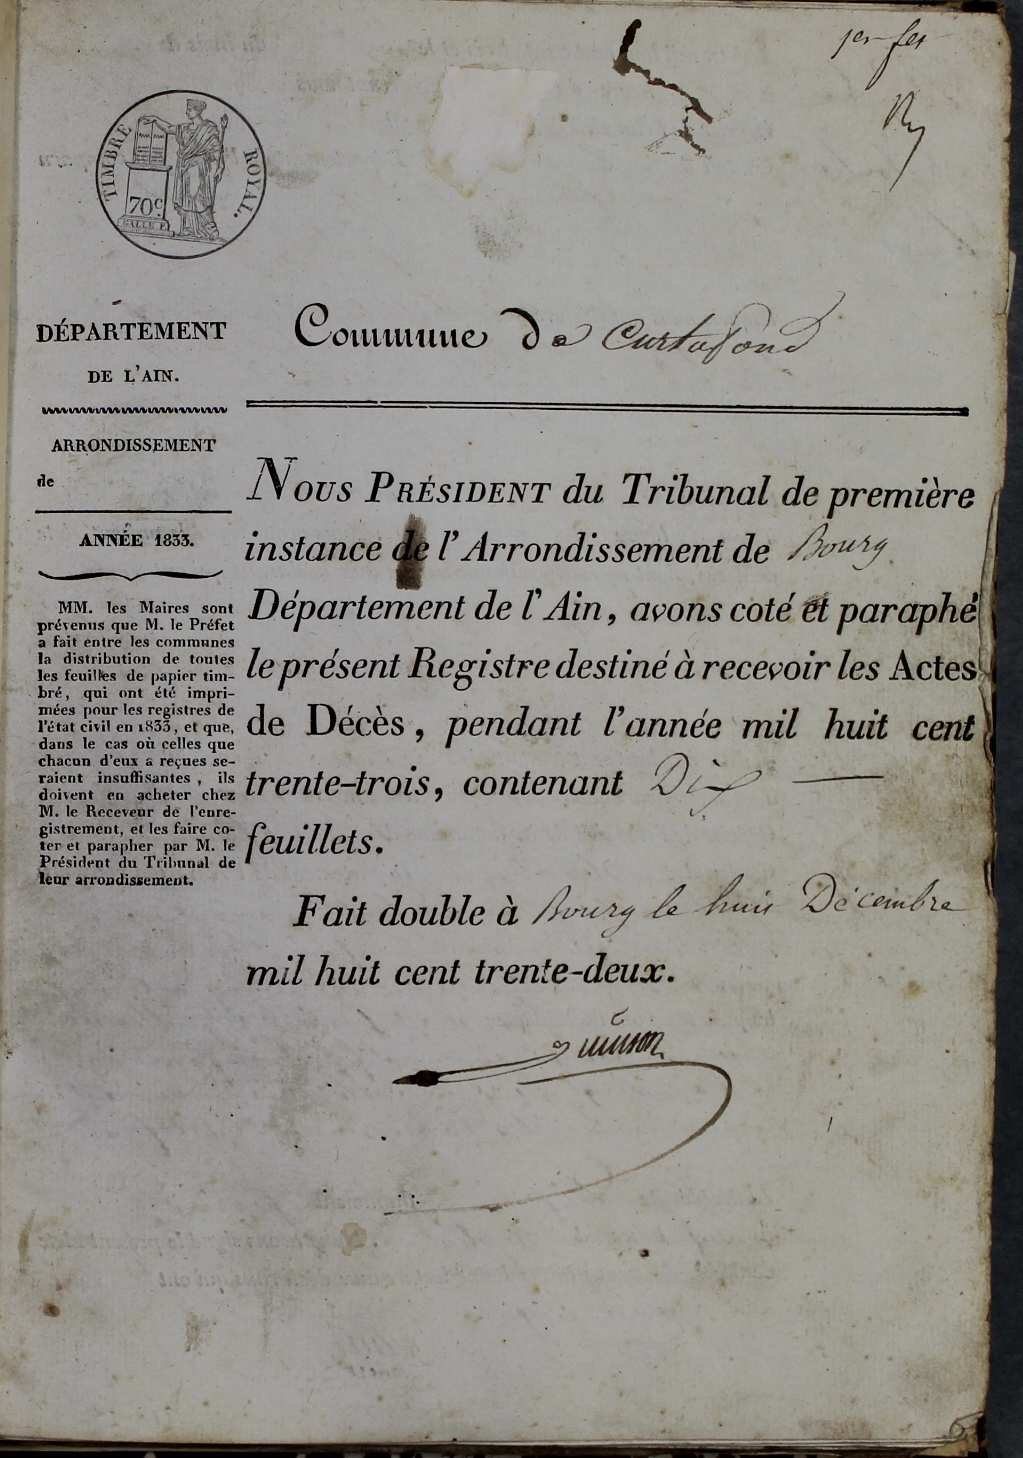 1er fet
TIMBRE ROYAL.
70c
DÉPARTEMENT
DE L'AIN.
ARRONDISSEMENT
de
ANNÉE 1833.
MM. les Maires sont
prévenus que M. le Préfet
a fait entre les communes
la distribution de toutes
les feuilles de papier tim-
bré, qui ont été impri-
mées pour les registres de
l'état civil en 1833, et que,
dans le cas où celles que
chacun d'eux a reçues se-
raient insuffisantes, ils
doivent en acheter chez
M. le Receveur de l'enre-
gistrement, et les faire co-
ter et parapher par M. le
Président du Tribunal de
leur arrondissement.
Commune de Curtafond
NOUS PRÉSIDENT du Tribunal de première
instance de l'Arrondissement de Bourg
Département de l'Ain, avons coté et paraphé
le présent Registre destiné à recevoir les Actes
de Décès, pendant l'année mil huit cent
trente-trois, contenant Dix —
feuillets.
Fait double à Bourg le huit Décembre
mil huit cent trente-deux.